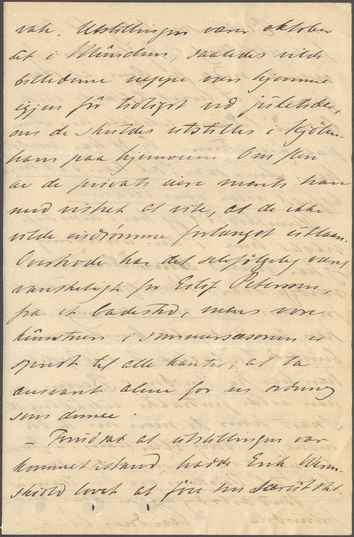 vah. Udstillingen varer oktober
ut i München, saaledes vilde
billederne neppe være hjemme
igjen før tidligst ved juletider,
om de skulde udstilles i Kjøben
havn paa hjemveien. Ønsken
av de private eiere mente han
med visket at vite, at de ikke
vilde indrømme forlænget utlaan.
Overhode har det selvfølgelig været
vanskeligt for Eilif Peterssen,
fra et badested, mens vore
künstnere i sommersæsonen er
spredt til alle kanter, at ta
ansvaret alene for en ordning
som denne.
– Forudsat at udstillingen var
kommet istand, hadde Erik Weren-
skiold lovet at føie en særskilt